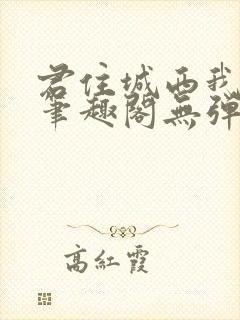 君住城西我
筆趣閣無彈
高紅霞